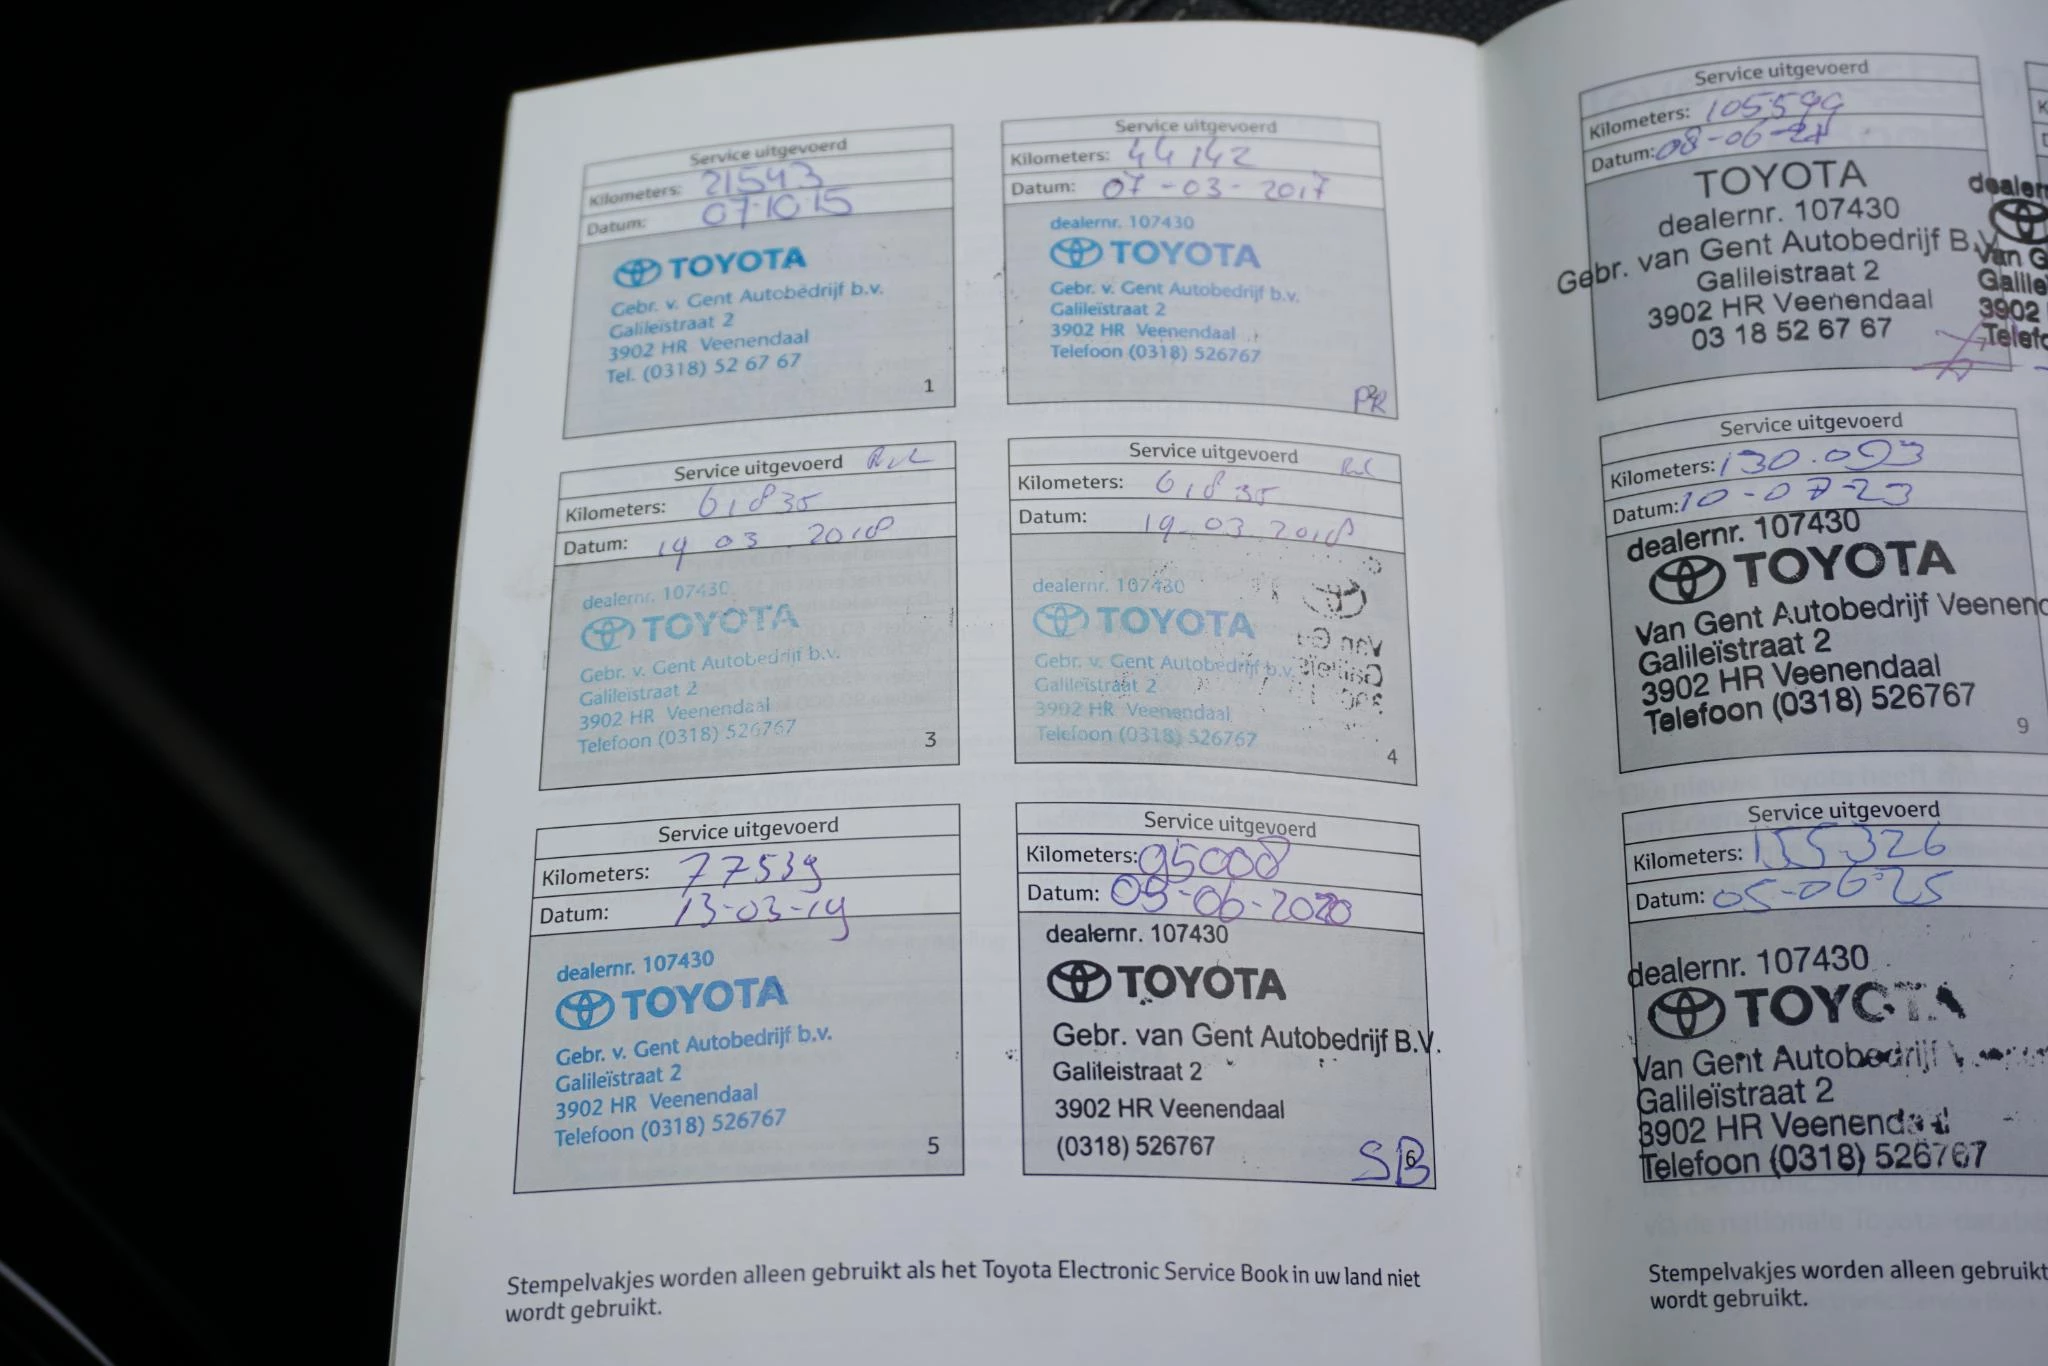 Service uitgevoerd
Kilometers: 21543
Datum: 07-10-15
TOYOTA
Gebr. v. Gent Autobedrijf b.v.
Galileïstraat 2
3902 HR Veenendaal
Tel. (0318) 52 67 67
1
Service uitgevoerd
Kilometers: 44142
Datum: 07-03-2017
dealernr. 107430
TOYOTA
Gebr. v. Gent Autobedrijf b.v.
Galileïstraat 2
3902 HR Veenendaal
Telefoon (0318) 526767
Service uitgevoerd
Kilometers: 61835
Datum: 19 03 2018
dealernr. 107430
TOYOTA
Gebr. v. Gent Autobedrijf b.v.
Galileïstraat 2
3902 HR Veenendaal
Telefoon (0318) 526767
3
Service uitgevoerd
Kilometers: 61835
Datum: 19-03-2018
dealernr. 107430
TOYOTA
Gebr. v. Gent Autobedrijf b.v.
Galileïstraat 2
3902 HR Veenendaal
Telefoon (0318) 526767
4
Service uitgevoerd
Kilometers: 77539
Datum: 13-03-19
dealernr. 107430
TOYOTA
Gebr. v. Gent Autobedrijf b.v.
Galileïstraat 2
3902 HR Veenendaal
Telefoon (0318) 526767
5
Service uitgevoerd
Kilometers: 95008
Datum: 05-06-2020
dealernr. 107430
TOYOTA
Gebr. van Gent Autobedrijf B.V.
Galileistraat 2
3902 HR Veenendaal
(0318) 526767
SB
6
Stempelvakjes worden alleen gebruikt als het Toyota Electronic Service Book in uw land niet
wordt gebruikt.
Service uitgevoerd
Kilometers: 105599
Datum: 08-06-21
TOYOTA
dealernr. 107430
Gebr. van Gent Autobedrijf B.V.
Galileistraat 2
3902 HR Veenendaal
03 18 52 67 67
Service uitgevoerd
Kilometers: 130.093
Datum: 10-07-23
dealernr. 107430
TOYOTA
Van Gent Autobedrijf
Galileïstraat 2
3902 HR Veenendaal
Telefoon (0318) 526767
9
Service uitgevoerd
Kilometers: 155326
Datum: 05-06-25
dealernr. 107430
TOYOTA
Van Gent Autobedrijf
Galileïstraat 2
3902 HR Veenendaal
Telefoon (0318) 526767
Stempelvakjes worden alleen gebruikt
wordt gebruikt.